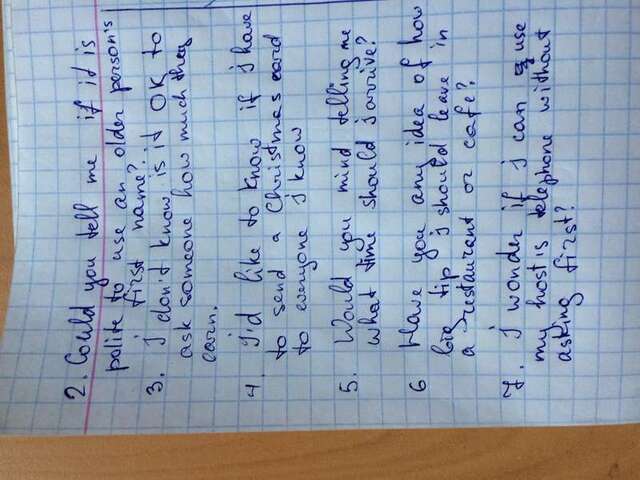 2. Could you tell me if it is
polite to use an older person's
first name?
3. I don't know is it OK to
ask someone how much they
earn.
4 I'd like to know if I have
to send a Christmas card
to everyone I know
5. Would you mind telling me
what time should I arrive?
6 Have you any idea of how
big tip I should leave in
a restaurant or cafe?
7. I wonder if I can use
my host is telephone without
asking first?